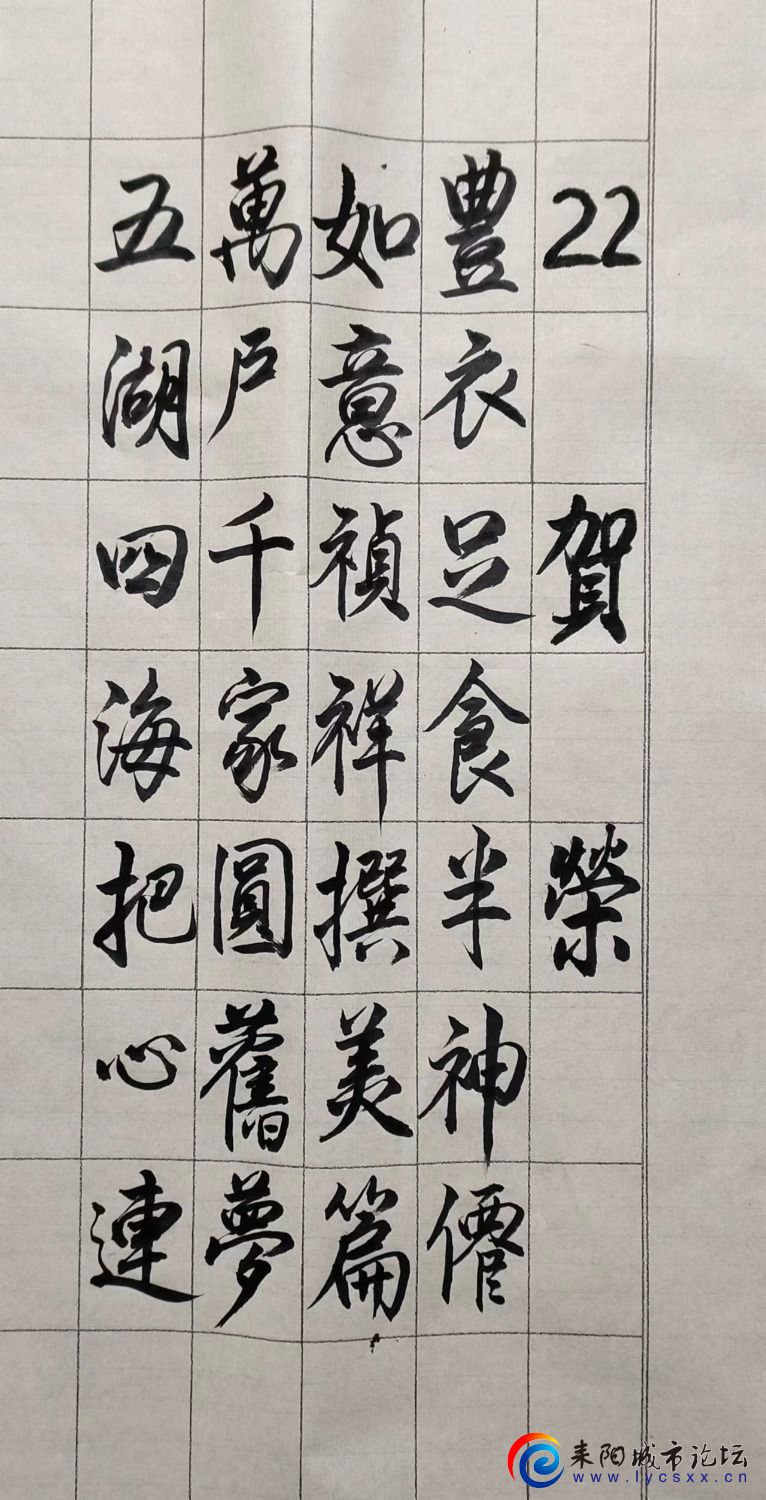 22 賀榮
豐衣足食半神僊
如意禎祥撰美篇
萬戶千家圓舊夢
五湖四海把心連
耒阳城市论坛
www.lycsxx.cn